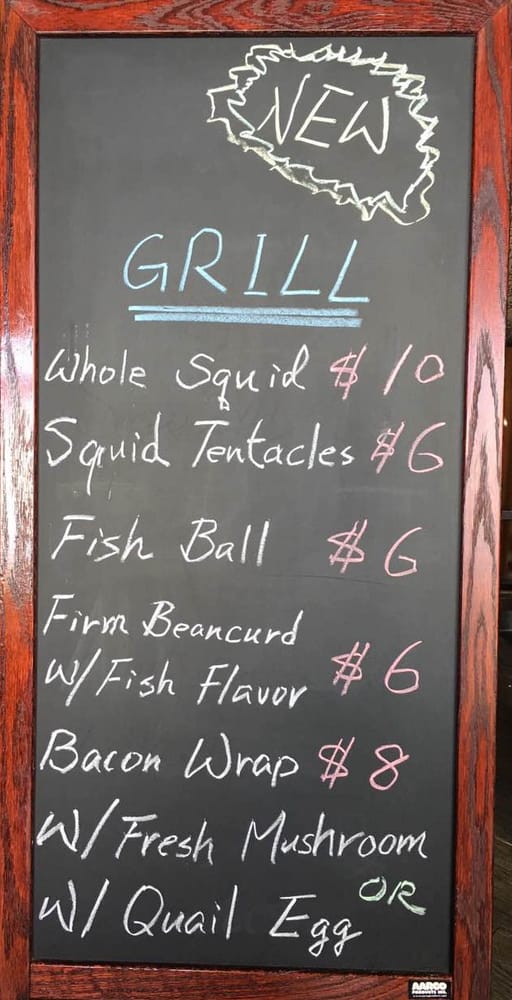 NEW
GRILL
Whole Squid $10
Squid Tentacles $6
Fish Ball $6
Firm Beancurd
W/Fish Flavor $6
Bacon Wrap $8
W/Fresh Mushroom
OR
W/Quail Egg
AARCO
PRODUCTS INC.